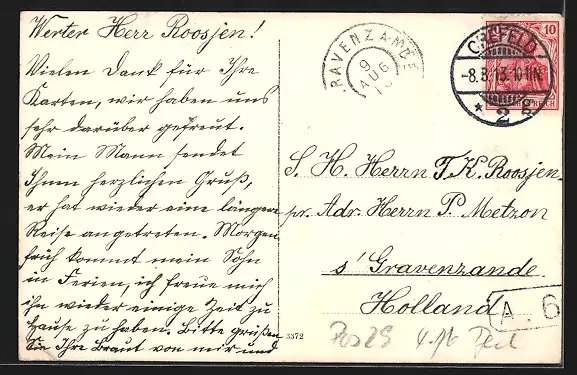 Werter Herr Roosjen!
Vielen Dank für Ihre
Karten, wir haben uns
sehr darüber gefreut.
Mein Mann sendet
Ihnen herzlichen Gruß,
er hat wieder eine längere
Reise angetreten. Morgen
früh kommt mein Sohn
in Ferien, ich freue mich
ihn wieder einige Zeit zu
Hause zu haben. Bitte grüßen
Sie Ihre Braut von mir und
'S GRAVENZANDE
9
AUG
CREFELD
-8.8.13.10-11N.
* 2
10
REICH
S. H. Herrn F. K. Roosjen
pr. Adr. Herrn P. Metzon
s'Gravenzande
Holland
A. 6
3372
Pos 25